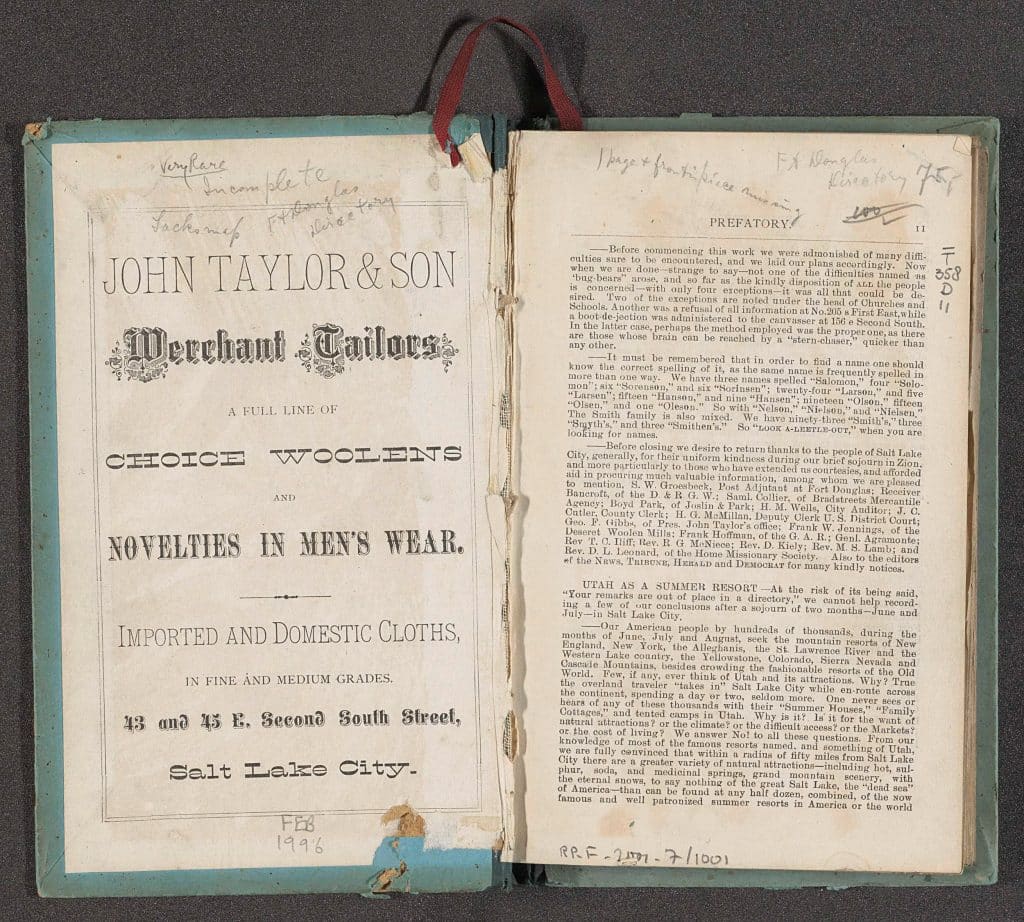 Very Rare
Incomplete
Lacks map
F A Douglas
Directory
JOHN TAYLOR & SON
Merchant Tailors,
A FULL LINE OF
CHOICE WOOLENS
AND
NOVELTIES IN MEN'S WEAR.
IMPORTED AND DOMESTIC CLOTHS,
IN FINE AND MEDIUM GRADES.
43 and 45 E. Second South Street,
Salt Lake City.
FEB
1996
1 page & frontispiece missing
F A Douglas
Directory 75,-
100
PREFATORY.
11
T
358
D
11
——Before commencing this work we were admonished of many diffi-
culties sure to be encountered, and we laid our plans accordingly. Now
when we are done—strange to say—not one of the difficulties named as
"bug-bears" arose, and so far as the kindly disposition of ALL the people
is concerned—with only four exceptions—it was all that could be de-
sired. Two of the exceptions are noted under the head of Churches and
Schools. Another was a refusal of all information at No. 205 s First East, while
a boot-de-jection was administered to the canvasser at 156 e Second South.
In the latter case, perhaps the method employed was the proper one, as there
are those whose brain can be reached by a "stern-chaser," quicker than
any other.
——It must be remembered that in order to find a name one should
know the correct spelling of it, as the same name is frequently spelled in
more than one way. We have three names spelled "Salomon," four "Solo-
mon"; six "Sorenson," and six "Sorinsen"; twenty-four "Larson," and five
"Larsen"; fifteen "Hanson," and nine "Hansen"; nineteen "Olson," fifteen
"Olsen," and one "Oleson." So with "Nelson," "Nielson," and "Nielsen."
The Smith family is also mixed. We have ninety-three "Smith's," three
"Smyth's," and three "Smithen's." So "LOOK A-LEETLE-OUT," when you are
looking for names.
——Before closing we desire to return thanks to the people of Salt Lake
City, generally, for their uniform kindness during our brief sojourn in Zion,
and more particularly to those who have extended us courtesies, and afforded
aid in procuring much valuable information, among whom we are pleased
to mention, S. W. Groesbeck, Post Adjutant at Fort Douglas; Receiver
Bancroft, of the D. & R G. W.; Saml. Collier, of Bradstreets Mercantile
Agency; Boyd Park, of Joslin & Park; H. M. Wells, City Auditor; J. C.
Cutler, County Clerk; H. G. McMillan, Deputy Clerk U. S. District Court;
Geo. F. Gibbs, of Pres. John Taylor's office; Frank W. Jennings, of the
Deseret Woolen Mills; Frank Hoffman, of the G. A. R.; Genl. Agramonte;
Rev T. C. Iliff; Rev. R G McNiece; Rev. D. Kiely; Rev. M. S. Lamb; and
Rev. D. L. Leonard, of the Home Missionary Society. Also to the editors
of the NEWS, TRIBUNE, HERALD and DEMOCRAT for many kindly notices.
UTAH AS A SUMMER RESORT—At the risk of its being said,
"Your remarks are out of place in a directory," we cannot help record-
ing a few of our conclusions after a sojourn of two months—June and
July—in Salt Lake City.
——Our American people by hundreds of thousands, during the
months of June, July and August, seek the mountain resorts of New
England, New York, the Alleghanis, the St. Lawrence River and the
Western Lake country, the Yellowstone, Colorado, Sierra Nevada and
Cascade Mountains, besides crowding the fashionable resorts of the Old
World. Few, if any, ever think of Utah and its attractions. Why? True
the overland traveler "takes in" Salt Lake City while en-route across
the continent, spending a day or two, seldom more. One never sees or
hears of any of these thousands with their "Summer Houses," "Family
Cottages," and tented camps in Utah. Why is it? Is it for the want of
natural attractions? or the climate? or the difficult access? or the Markets?
or the cost of living? We answer No! to all these questions. From our
knowledge of most of the famous resorts named, and something of Utah,
we are fully convinced that within a radius of fifty miles from Salt Lake
City there are a greater variety of natural attractions—including hot, sul-
phur, soda, and medicinal springs, grand mountain scenery, with
the eternal snows, to say nothing of the great Salt Lake, the "dead sea"
of America—than can be found at any half dozen, combined, of the now
famous and well patronized summer resorts in America or the world
RP-F-2001-7/1001